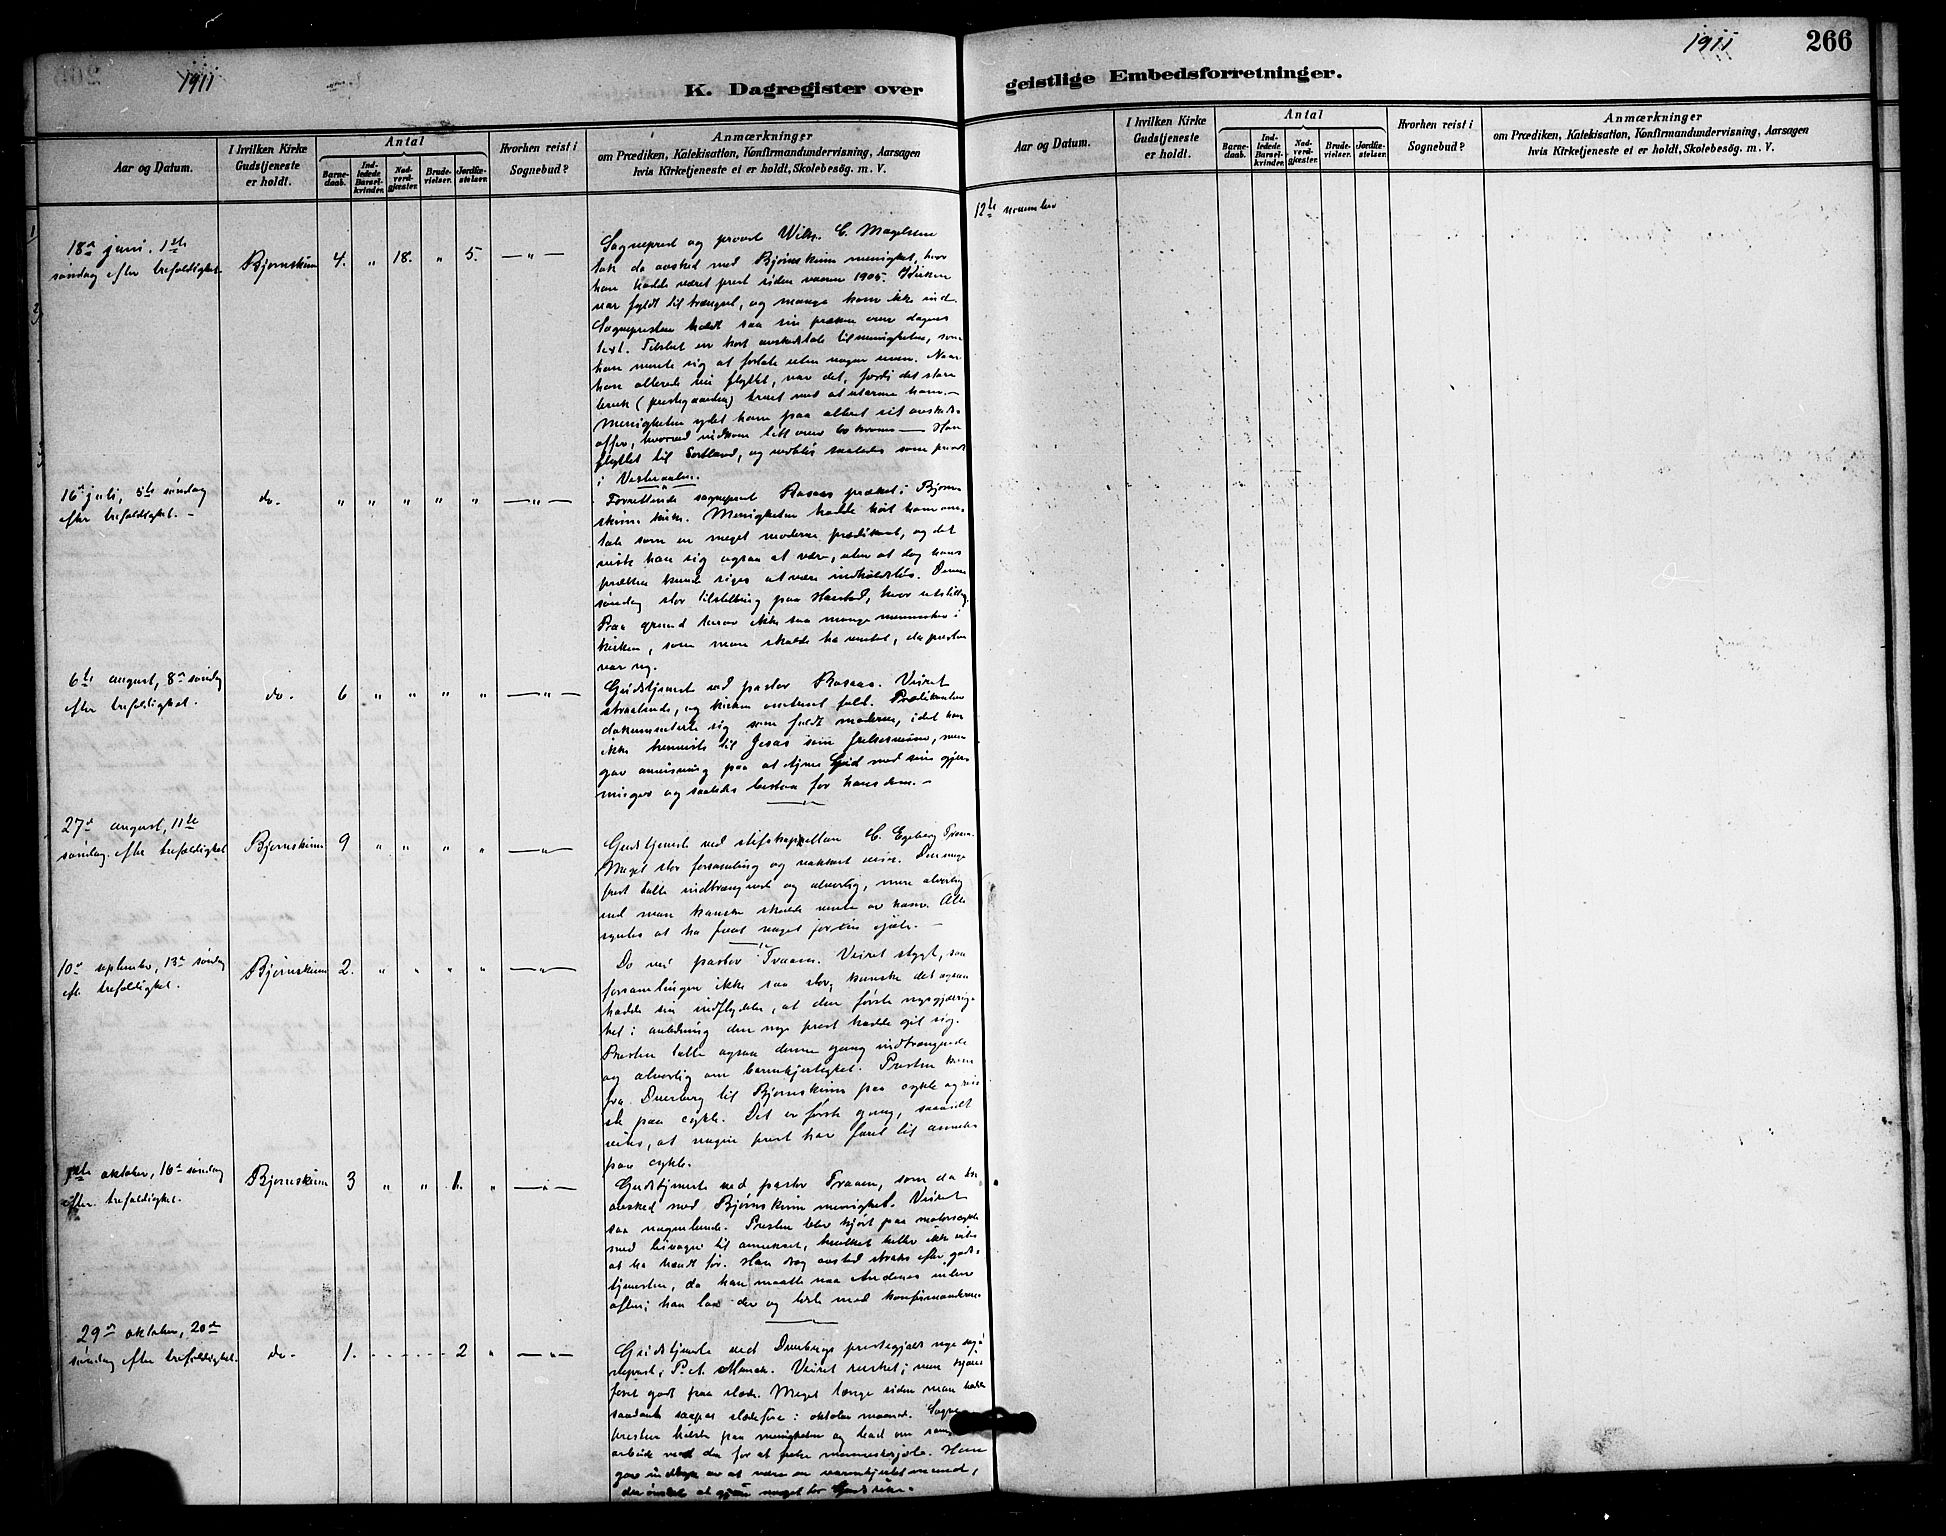 1911
K. Dagregister over
Aar og Datum.
I hvilken Kirke
Gudstjeneste
er holdt.
Antal
Barne-
daab.
Ind-
ledede
Barsel-
kvinder.
Nad-
verd-
gjæster.
Brude-
vielser.
Jordfæ-
stelser.
Hvorhen reist i
Sognebud?
Anmærkninger
om Prædiken, Katekisation, Konfirmandundervisning, Aarsagen
hvis Kirketjeneste ei er holdt, Skolebesög. m. V.
18de juni. 1ste
søndag efter trefoldighet
Bjørnskinn
4. " 18. " 5. — " —
Sogneprest og provst Wilh. C. Magelssen
tok da avsked med Bjørnskinn menighet, hvor
han hadde været prest siden vaaren 1905. Kirken
var fyldt til trængsel, og mange kom ikke ind.
Sognepresten holdt saa sin præken over dagens
text. Tilslut en kort avskedstale til menigheten, som
han mente sig at forlate uten nogen uven. Naar
han allerede nu flyttet, var det, fordi det store
bruk (prestegaarden) truet med at utarme ham.—
Menigheten ydet ham paa alteret sit avskeds-
offer, hvorved indkom litt over 60 kroner — Han
flyttet til Sortland, og vedblir saaledes som provst
i Vesteraalen.
16de juli, 5te søndag
efter trefoldighet. -
do.
" " " " " — " —
Forrettende sogneprest Rosaas præket i Bjørn-
skinn kirke. Menigheten hadde hört ham om-
tale som en meget moderne prædikant, og det
viste han sig ogsaa at være, uten at dog hans
præken kunde siges at være indholdsløs. Denne
søndag stor tilstelning paa Harstad, hvor utstilling.
Paa grund herav ikke saa mange mennesker i
kirken, som man skulde ha ventet, da presten
var ny.
6te august, 8de søndag
efter trefoldighet.
do.
6 " " " " — " —
Gudstjeneste ved pastor Rosaas. Veiret
straalende, og kirken omtrent fuld. Prædikanten
dokumenterte sig som fuldt moderne, idet han
ikke henviste til Jesus som frelseren, men
gav anvisning paa at tjene Gud med sine gjer-
ninger og saaledes bestaa for hans dom. -
27de august, 11te
søndag efter trefoldighet
Bjørnskinn
9 " " " " — " —
Gudstjeneste ved stiftskapellan C. Egeberg Traaen.
Meget stor forsamling og vakkert veir. Den unge
prest talte indtrængende og alvorlig, mere alvorlig
end man kanske skulde vente av ham. Alle
syntes at ha faat noget for sin sjæl. -
10de september, 13de søndag
eft. trefoldighet.
Bjørnskinn
2. " " " " — " —
Do ved pastor Traaen. Veiret stygt, saa
forsamlingen ikke saa stor, kanske det ogsaa
hadde sin indflydelse, at den første nysgjerrig-
het i anledning den nye prest hadde git sig.
Presten talte ogsaa denne gang indtrængende
og alvorlig om barmhjertighet. Presten kom
fra Dverberg til Bjørnskinn paa cykle og reis-
te paa cykle. Det er første gang, saavidt
vites, at nogen prest har faret til annekset
paa cykle.
1ste oktober, 16de søndag
efter. trefoldighet.
Bjørnskinn
3 " " 1. " — " —
Gudstjeneste ved pastor Traaen, som da tok
avsked med Bjørnskinn menighet. Veiret
saa nogenlunde. Presten blev kjørt paa motorcykle
med bivogn til annekset, hvilket heller ikke vites
at ha hændt før. Han drog avsted straks efter guds-
tjenesten, da han maatte naa Andenes inden
aften; han laa der og læste med konfirmanderne
29de oktober, 20de
søndag efter trefoldighet.
do.
1. . . . . . . 2 " — " —
Gudstjeneste ved Dverbergs prestegjelds nye sog-
neprest, P. A. Munch. Veiret rusket; men kjøre-
føret godt paa slæde. Meget længe siden man hadde
saadant slædeføre i oktober maaned. Sogne-
presten hilste paa menigheten og bad om sam-
arbeide ved da for at frelse menneskesjæle. Han
gav indtryk av at være en varmhjertet mand,
der ønsket at gjøre noget for Guds rike.
1911
266
geistlige Embedsforretninger.
Aar og Datum.
I hvilken Kirke
Gudstjeneste
er holdt.
Antal
Barne-
daab.
Ind-
ledede
Barsel-
kvinder.
Nad-
verd-
gjæster.
Brude-
vielser.
Jordfæ-
stelser.
Hvorhen reist i
Sognebud?
Anmærkninger
om Prædiken, Katekisation, Konfirmandundervisning, Aarsagen
hvis Kirketjeneste ei er holdt, Skolebesög. m. V.
12te november